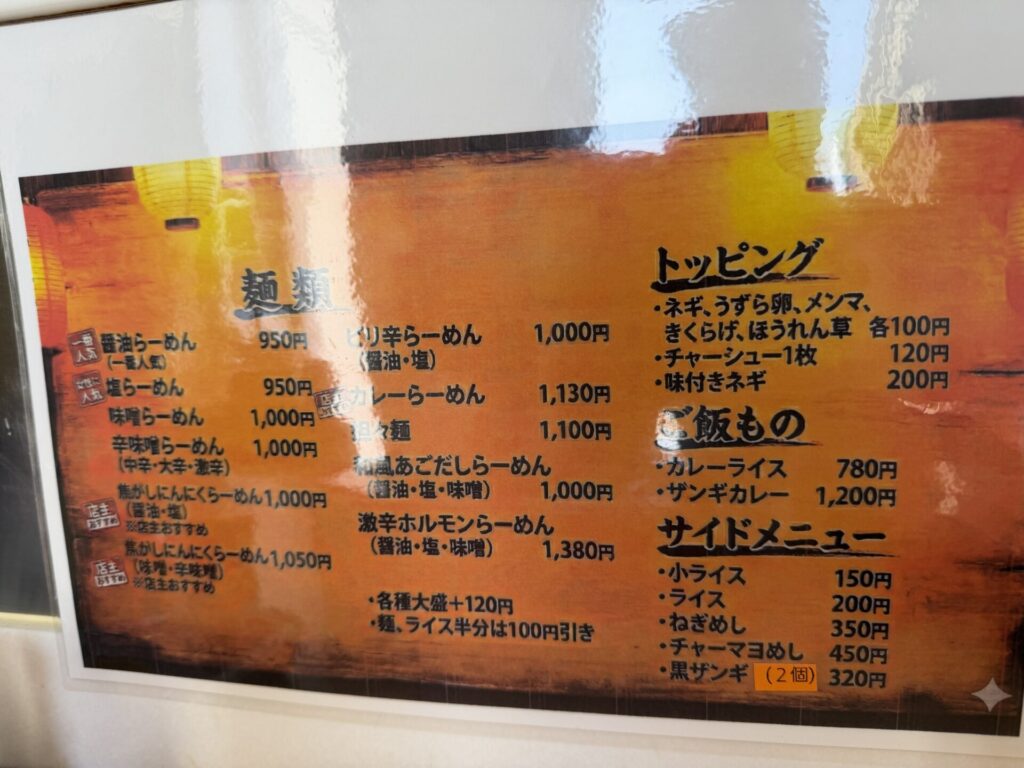 麺類
一番人気
醤油らーめん 950円
(一番人気)
女性に人気
塩らーめん 950円
味噌らーめん 1,000円
辛味噌らーめん 1,000円
(中辛・大辛・激辛)
焦がしにんにくらーめん 1,000円
(醤油・塩)
店主おすすめ
※店主おすすめ
焦がしにんにくらーめん 1,050円
(味噌・辛味噌)
店主おすすめ
※店主おすすめ
ピリ辛らーめん 1,000円
(醤油・塩)
カレーらーめん 1,130円
担々麺 1,100円
和風あごだしらーめん
(醤油・塩・味噌) 1,000円
激辛ホルモンらーめん
(醤油・塩・味噌) 1,380円
・各種大盛+120円
・麺、ライス半分は100円引き
トッピング
・ネギ、うずら卵、メンマ、
きくらげ、ほうれん草 各100円
・チャーシュー1枚 120円
・味付きネギ 200円
ご飯もの
・カレーライス 780円
・ザンギカレー 1,200円
サイドメニュー
・小ライス 150円
・ライス 200円
・ねぎめし 350円
・チャーマヨめし 450円
・黒ザンギ (2個) 320円